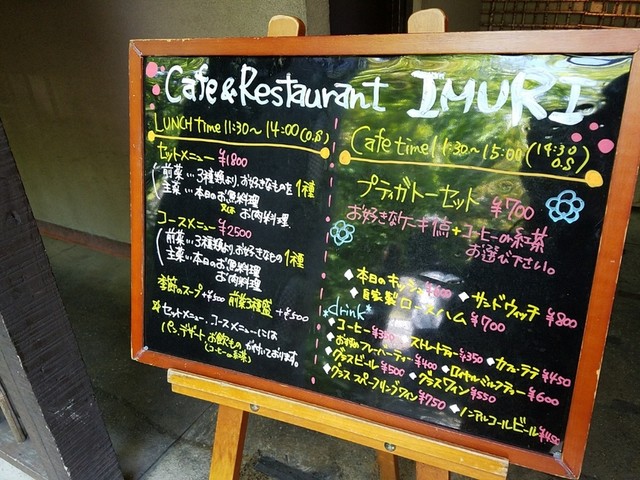 Cafe & Restaurant IMURI
LUNCH time 11:30〜14:00(O.S)
セットメニュー ¥1800
前菜…3種類より、お好きなものを1種
主菜…本日のお魚料理
又は
お肉料理
コースメニュー ¥2500
前菜…3種類よりお好きなもの1種
主菜…本日のお魚料理
お肉料理
季節のスープ+¥500 前菜3種盛+¥500
※セットメニュー、コースメニューには
パン、デザート、お飲もの が付いております。
(コーヒーor紅茶)
Cafe time 14:30〜15:00 (14:30
O.S)
プティガトーセット ¥700
お好きなケーキ1点+コーヒーor紅茶
お選び下さい。
◆本日のキッシュ
◆サンドウィッチ ¥800
◆自家製ロースハム ¥700
*drink*
◆コーヒー¥350 ◆ストレートティー¥350 ◆カフェ・ラテ ¥450
◆お好みフレーバーティー ¥400 ◆ロイヤルミルクティー ¥600
◆グラスビール ¥500 ◆グラスワイン ¥550
◆グラス スパークリングワイン ¥750 ◆ノンアルコールビール ¥450